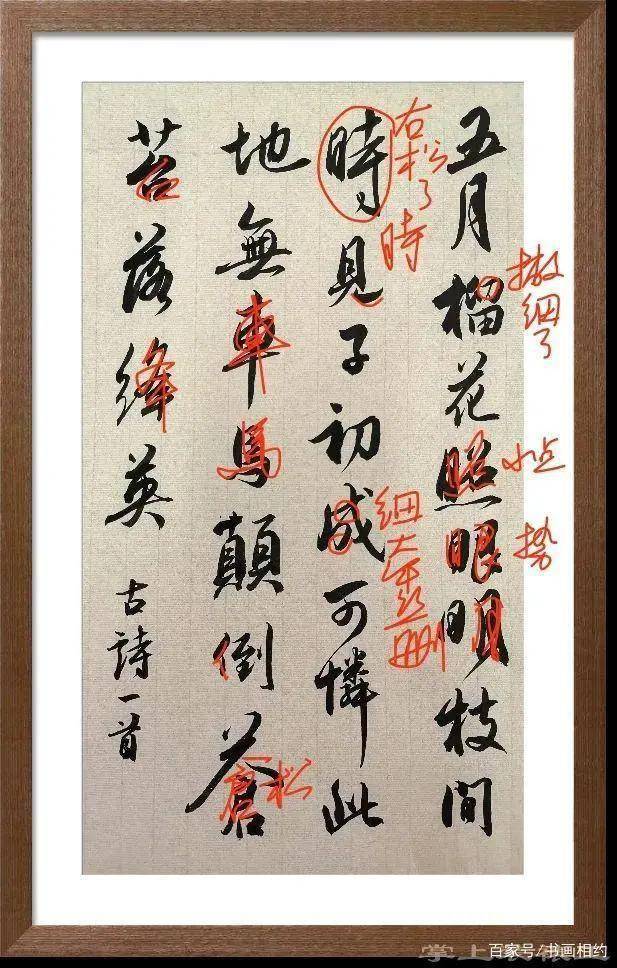 五月榴花照眼明枝間
時見子初成可憐此
地無車馬顛倒蒼
苔落絳英
古詩一首
撇细了
小点
势
右松了時
细大
松
百家号/书画相约
掌上